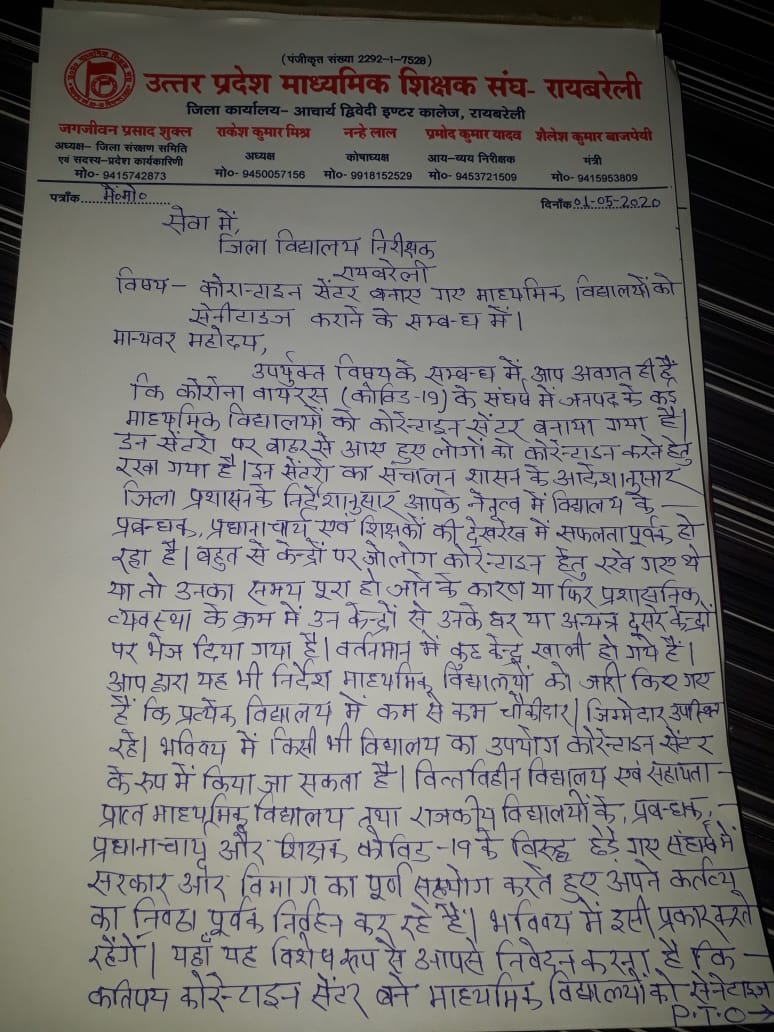 (पंजीकृत संख्या 2292-1-7528)
उत्तर प्रदेश माध्यमिक शिक्षक संघ- रायबरेली
जिला कार्यालय- आचार्य द्विवेदी इण्टर कालेज, रायबरेली
जगजीवन प्रसाद शुक्ल राकेश कुमार मिश्र नन्हे लाल प्रमोद कुमार यादव शैलेश कुमार बाजपेयी
अध्यक्ष- जिला संरक्षण समिति अध्यक्ष कोषाध्यक्ष आय-व्यय निरीक्षक मंत्री
एवं सदस्य-प्रदेश कार्यकारिणी
मो०- 9415742873 मो०- 9450057156 मो०- 9918152529 मो०- 9453721509 मो०- 9415953809
पत्राँक......मे०मो०...... दिनाँक 01-05-2020
सेवा में,
जिला विद्यालय निरीक्षक
रायबरेली
विषय- कोरान्टाइन सेंटर बनाए गए माध्यमिक विद्यालयों को
सेनीटाइज कराने के सम्बन्ध में।
मान्यवर महोदय,
उपर्युक्त विषय के सम्बन्ध में, आप अवगत ही हैं
कि कोरोना वायरस (कोविड-19) के संघर्ष में जनपद के कई
माध्यमिक विद्यालयों को कोरेन्टाइन सेंटर बनाया गया है।
इन सेंटरो पर बाहर से आए हुए लोगों को कोरेन्टाइन करने हेतु
रखा गया है। इन सेंटरो का संचालन शासन के आदेशानुसार
जिला प्रशासन के निर्देशानुसार आपके नेतृत्व में विद्यालय के —
प्रबन्धक, प्रधानाचार्य एवं शिक्षकों की देखरेख में सफलता पूर्वक हो
रहा है। बहुत से केन्द्रों पर जो लोग कोरेन्टाइन हेतु रखे गए थे
या तो उनका समय पूरा हो जाने के कारण या फिर प्रशासनिक
व्यवस्था के क्रम में उन केन्द्रों से उनके घर या अन्यत्र दूसरे केन्द्रों
पर भेज दिया गया है। वर्तमान में कुछ केन्द्र खाली हो गये हैं।
आप द्वारा यह भी निर्देश माध्यमिक विद्यालयों को जारी किए गए
हैं कि प्रत्येक विद्यालय में कम से कम चौकीदार/जिम्मेदार उपस्थित
रहे। भविष्य में किसी भी विद्यालय का उपयोग कोरेन्टाइन सेंटर
के रूप में किया जा सकता है। वित्तविहीन विद्यालय एवं सहायता —
प्राप्त माध्यमिक विद्यालय तथा राजकीय विद्यालयों के, प्रबन्धक, —
प्रधानाचार्य और शिक्षक कोविड-19 के विरुद्ध छेड़े गए संघर्ष में
सरकार और विभाग का पूर्ण सहयोग करते हुए अपने कर्तव्य
का निष्ठा पूर्वक निर्वहन कर रहे हैं। भविष्य में इसी प्रकार करते
रहेंगें। यहाँ यह विशेष रूप से आपसे निवेदन करना है कि —
कतिपय कोरेन्टाइन सेंटर बने माध्यमिक विद्यालयों को सेनेटाइज
P.T.O→